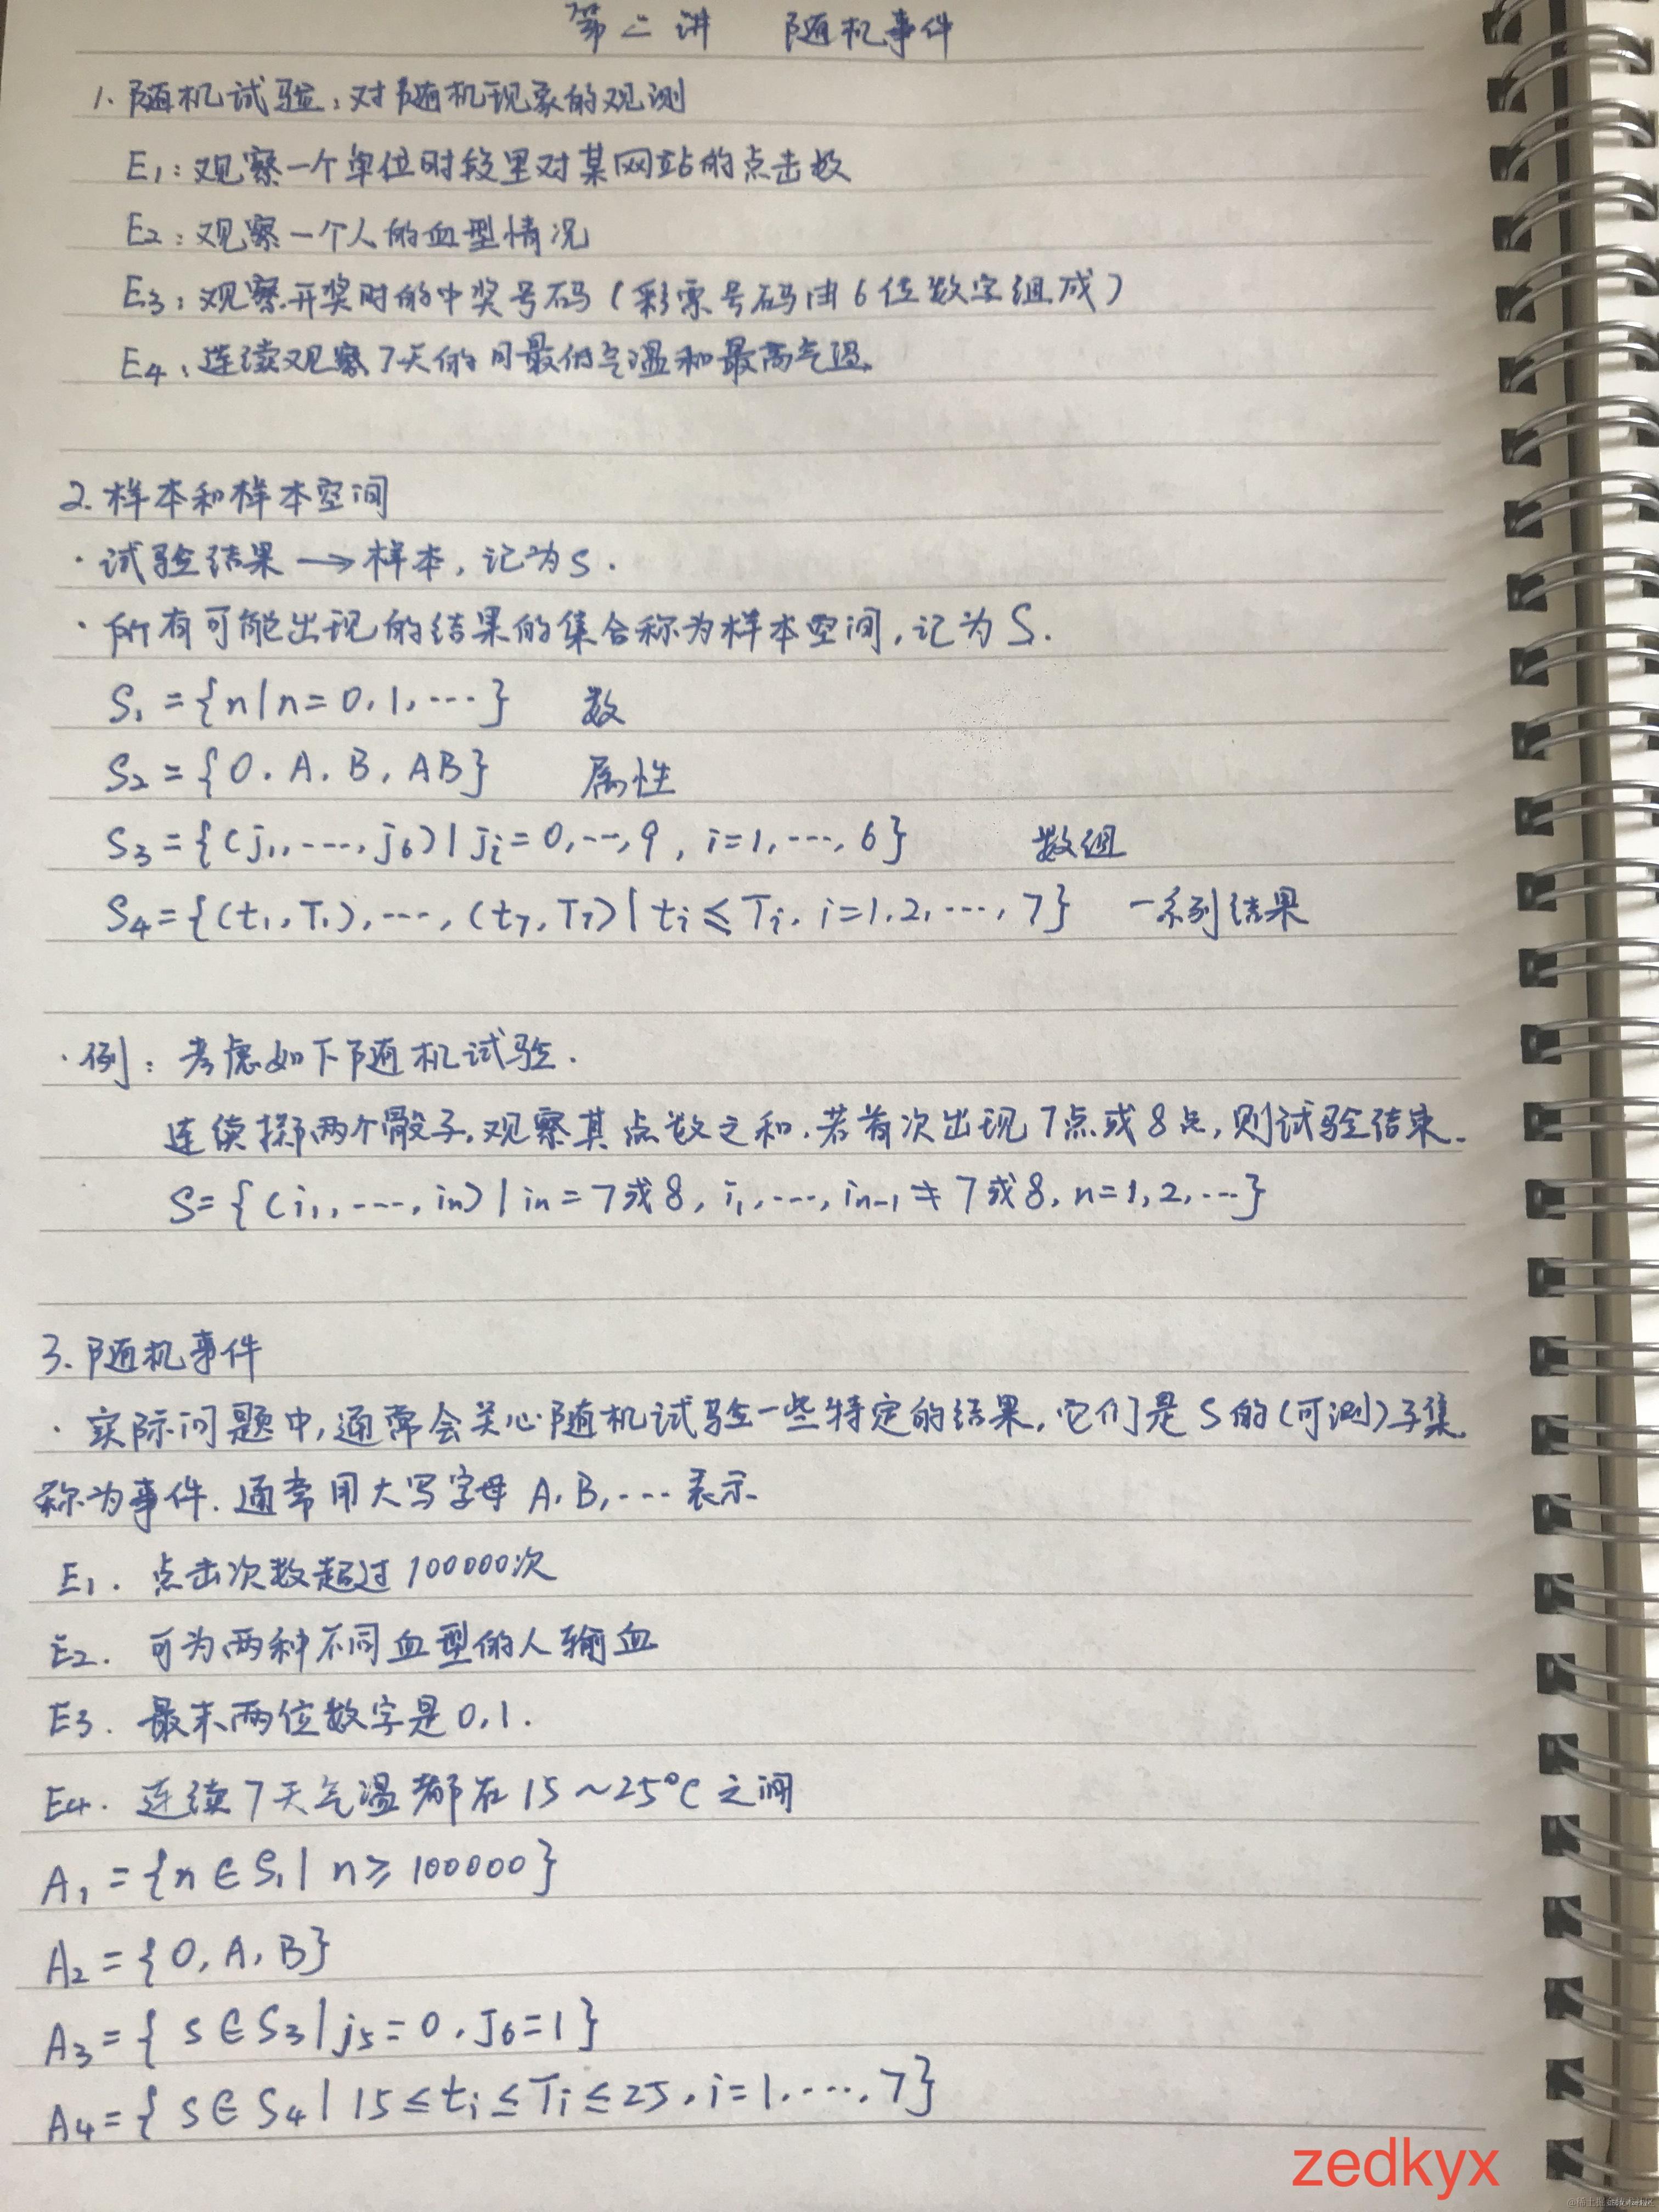 第二讲 随机事件
1. 随机试验:对随机现象的观测
E1:观察一个单位时段里对某网站的点击数
E2:观察一个人的血型情况
E3:观察开奖时的中奖号码(彩票号码由6位数字组成)
E4:连续观察7天的日最低气温和最高气温.
2. 样本和样本空间
· 试验结果 → 样本, 记为s.
· 所有可能出现的结果的集合称为样本空间, 记为S.
S₁ = {n|n=0,1,…} 数
S₂ = {O, A, B, AB} 属性
S₃ = {(j₁,…,j₆)|jᵢ=0,…,9, i=1,…,6} 数组
S₄ = {(t₁,T₁),…,(t₇,T₇)|tᵢ≤Tᵢ, i=1,2,…,7} 一系列结果
· 例:考虑如下随机试验.
连续掷两个骰子,观察其点数之和,若首次出现7点或8点,则试验结束.
S={(i₁,…,iₙ)|iₙ=7或8, i₁,…,iₙ₋₁≠7或8, n=1,2,…}
3. 随机事件
· 实际问题中,通常会关心随机试验一些特定的结果,它们是S的(可测)子集
称为事件. 通常用大写字母 A, B,… 表示.
E1. 点击次数超过100000次
E2. 可为两种不同血型的人输血
E3. 最末两位数字是0,1.
E4. 连续7天气温都在15~25℃之间
A₁ = {n∈S₁|n≥100000}
A₂ = {O, A, B}
A₃ = {s∈S₃|j₅=0, j₆=1}
A₄ = {s∈S₄|15≤tᵢ≤Tᵢ≤25, i=1,…,7}
zedkyx